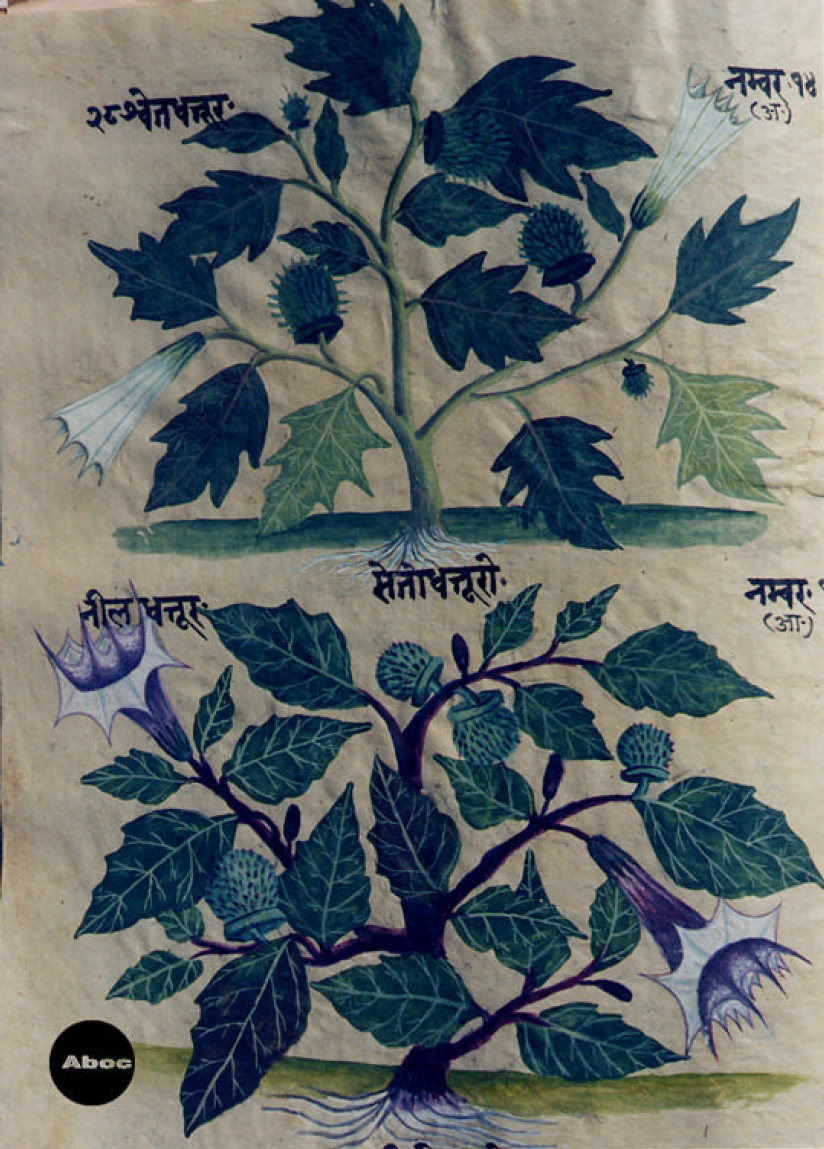 २८ श्वेतधत्तूरः
नम्बर १४
(अ॰)
सेतो धत्तूरो॰
नील धत्तूरः
नम्बरः १
(आ॰)
Aboc